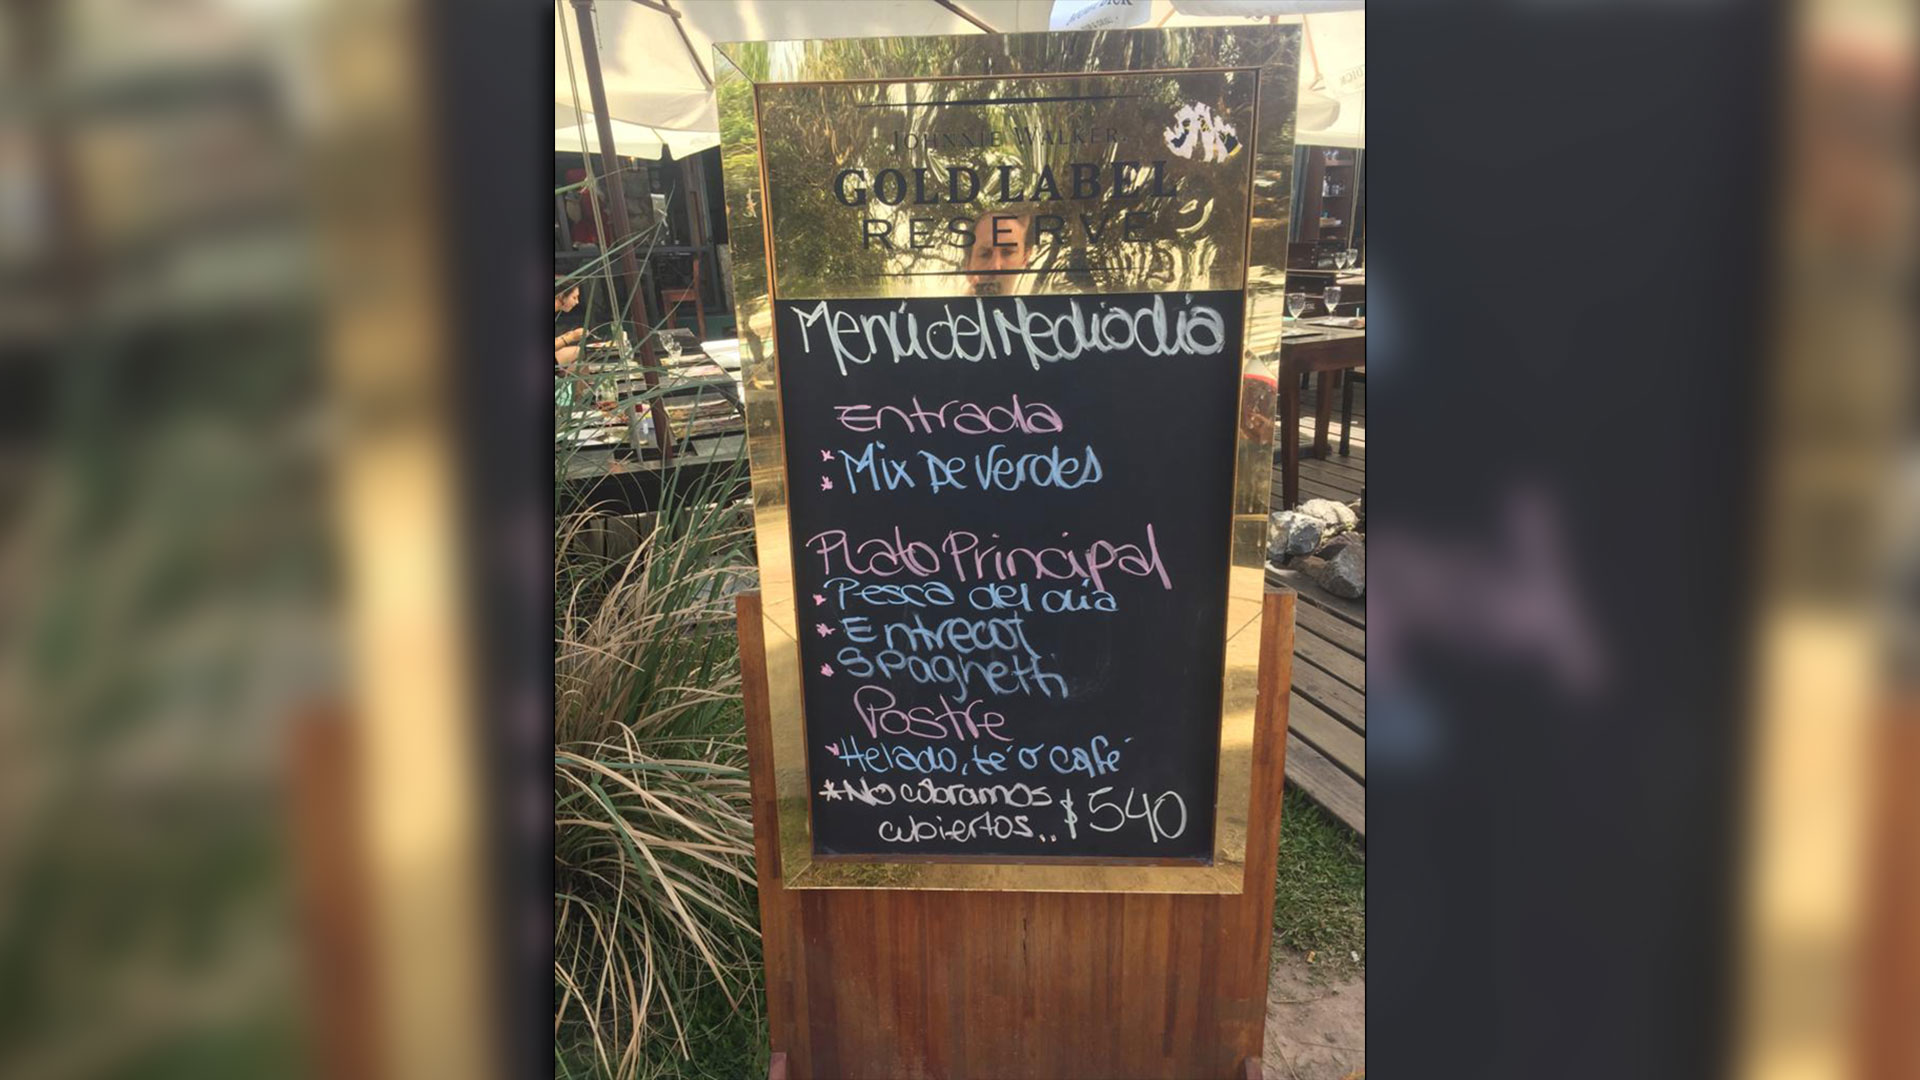 JOHNNIE WALKER
GOLD LABEL
RESERVE
Menú del Mediodía
Entrada
* Mix De Verdes
*
Plato Principal
* Pesca del día
* Entrecot
* Spaghetti
Postre
* Helado, té o café
* No cobramos
cubiertos.. $540